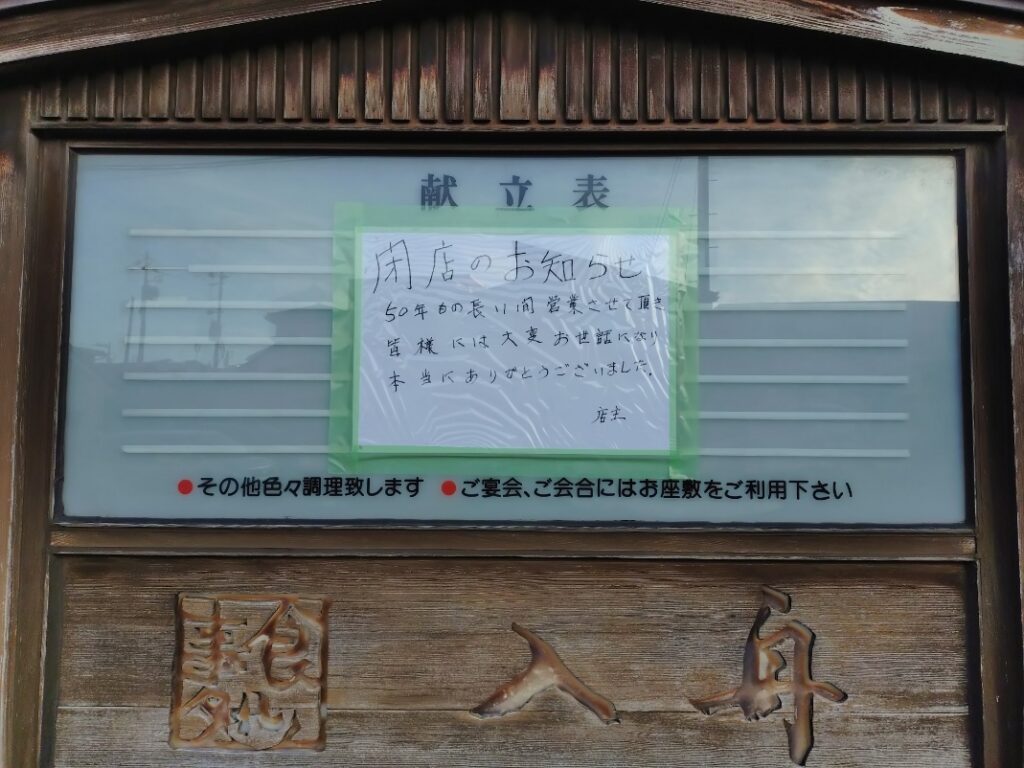 献立表
閉店のお知らせ
50年もの長い間営業させて頂き
皆様には大変お世話になり
本当にありがとうございました。
店主
●その他色々調理致します ●ご宴会、ご会合にはお座敷をご利用下さい
食事処
入舟